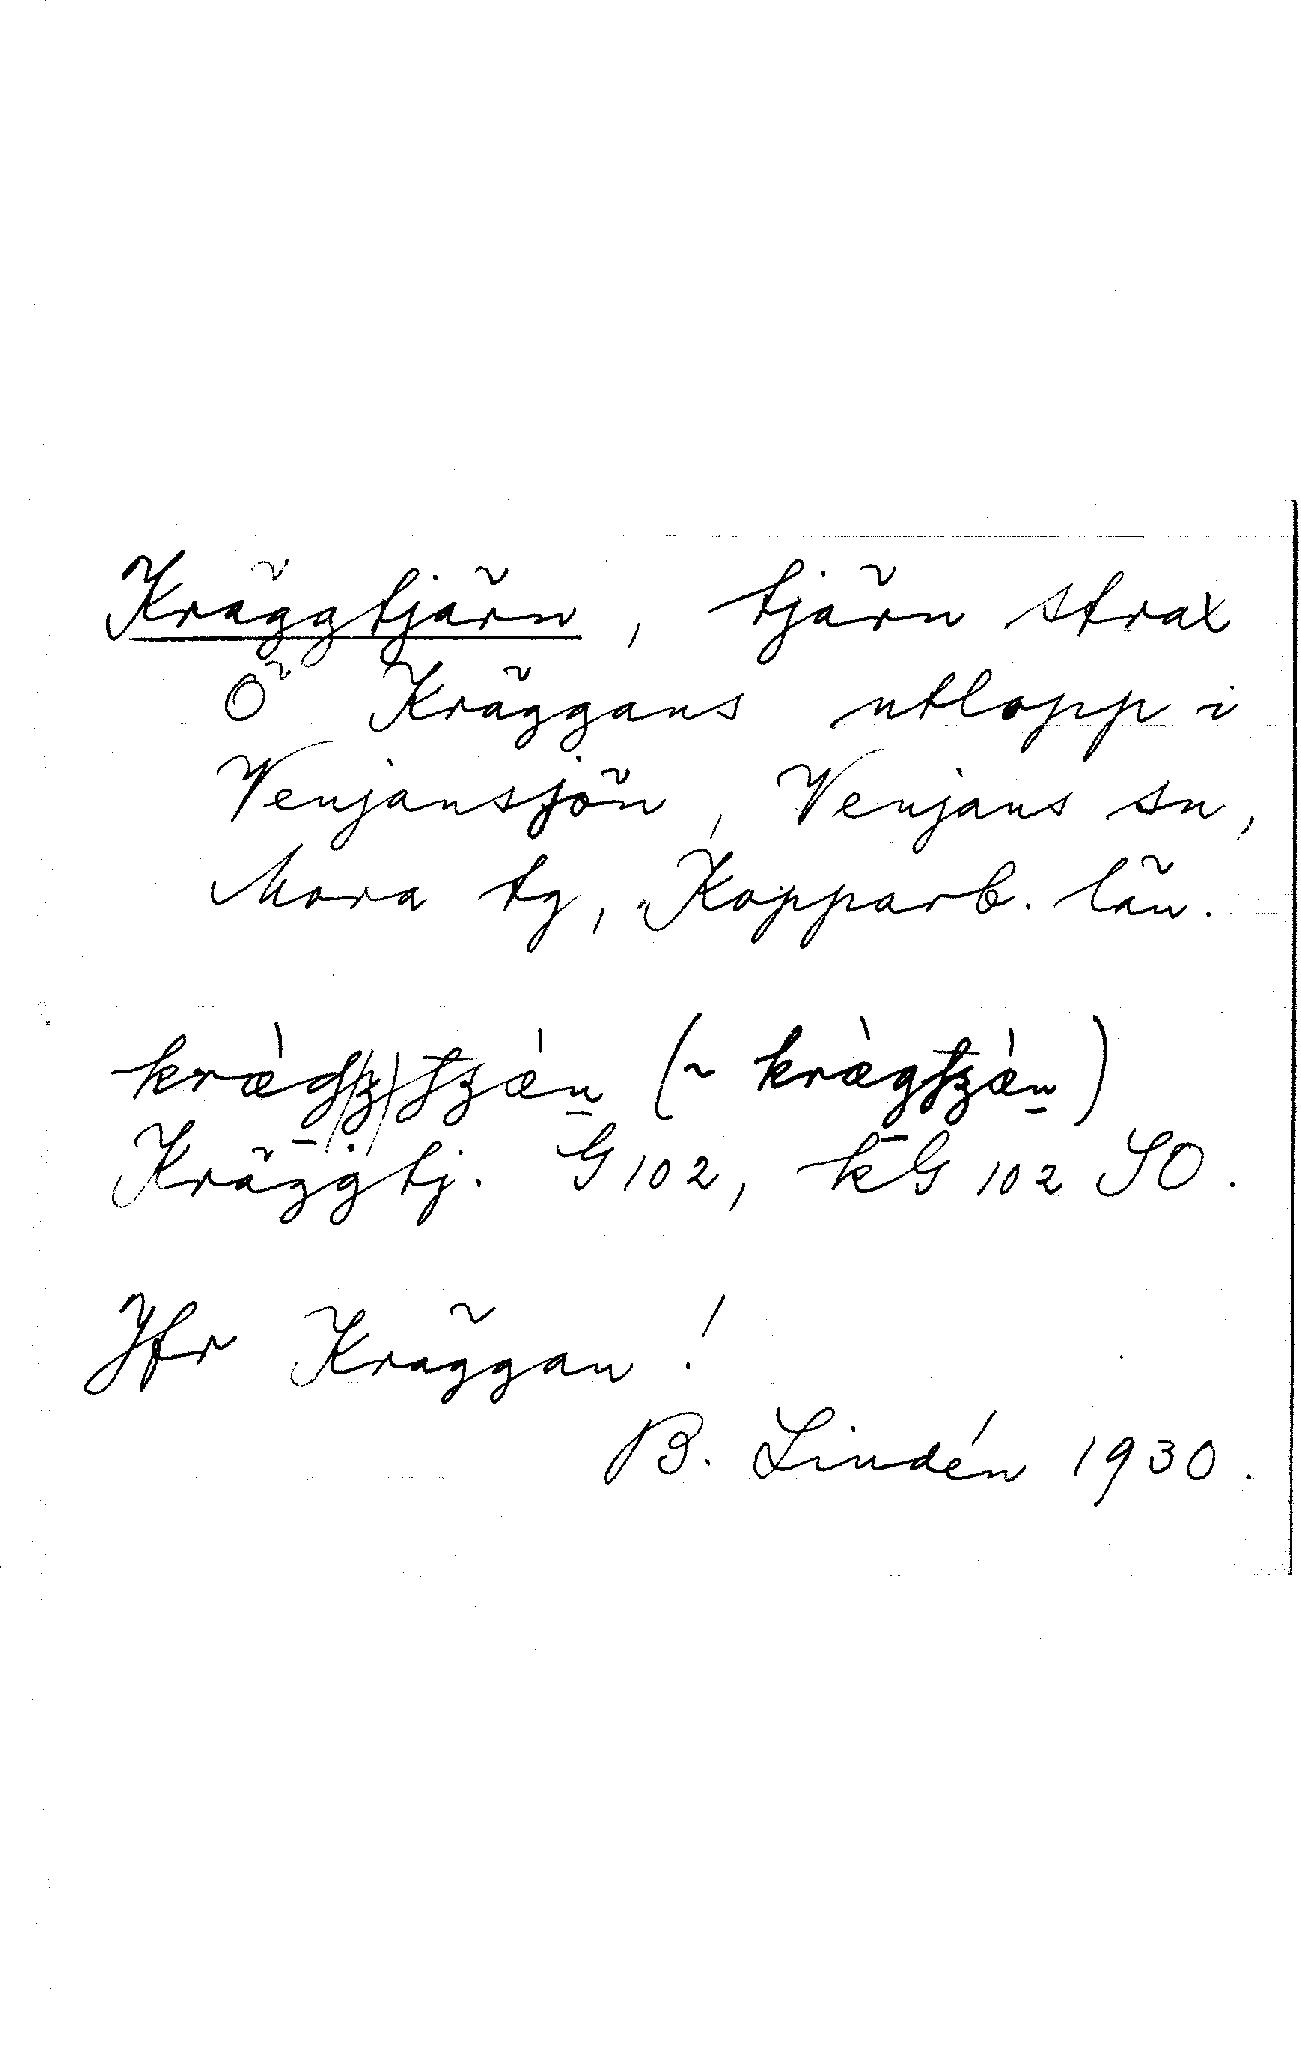 Kräggtjärn, tjärn strax
Ö Kräggans utlopp i
Venjansjön, Venjans sn,
Mora tg, Kopparb. län.
(~ krὰgtʒǽn)
Kräggtj. G 102, kG 102 SO.
Jfr Kräggan!
B. Lindén 1930.